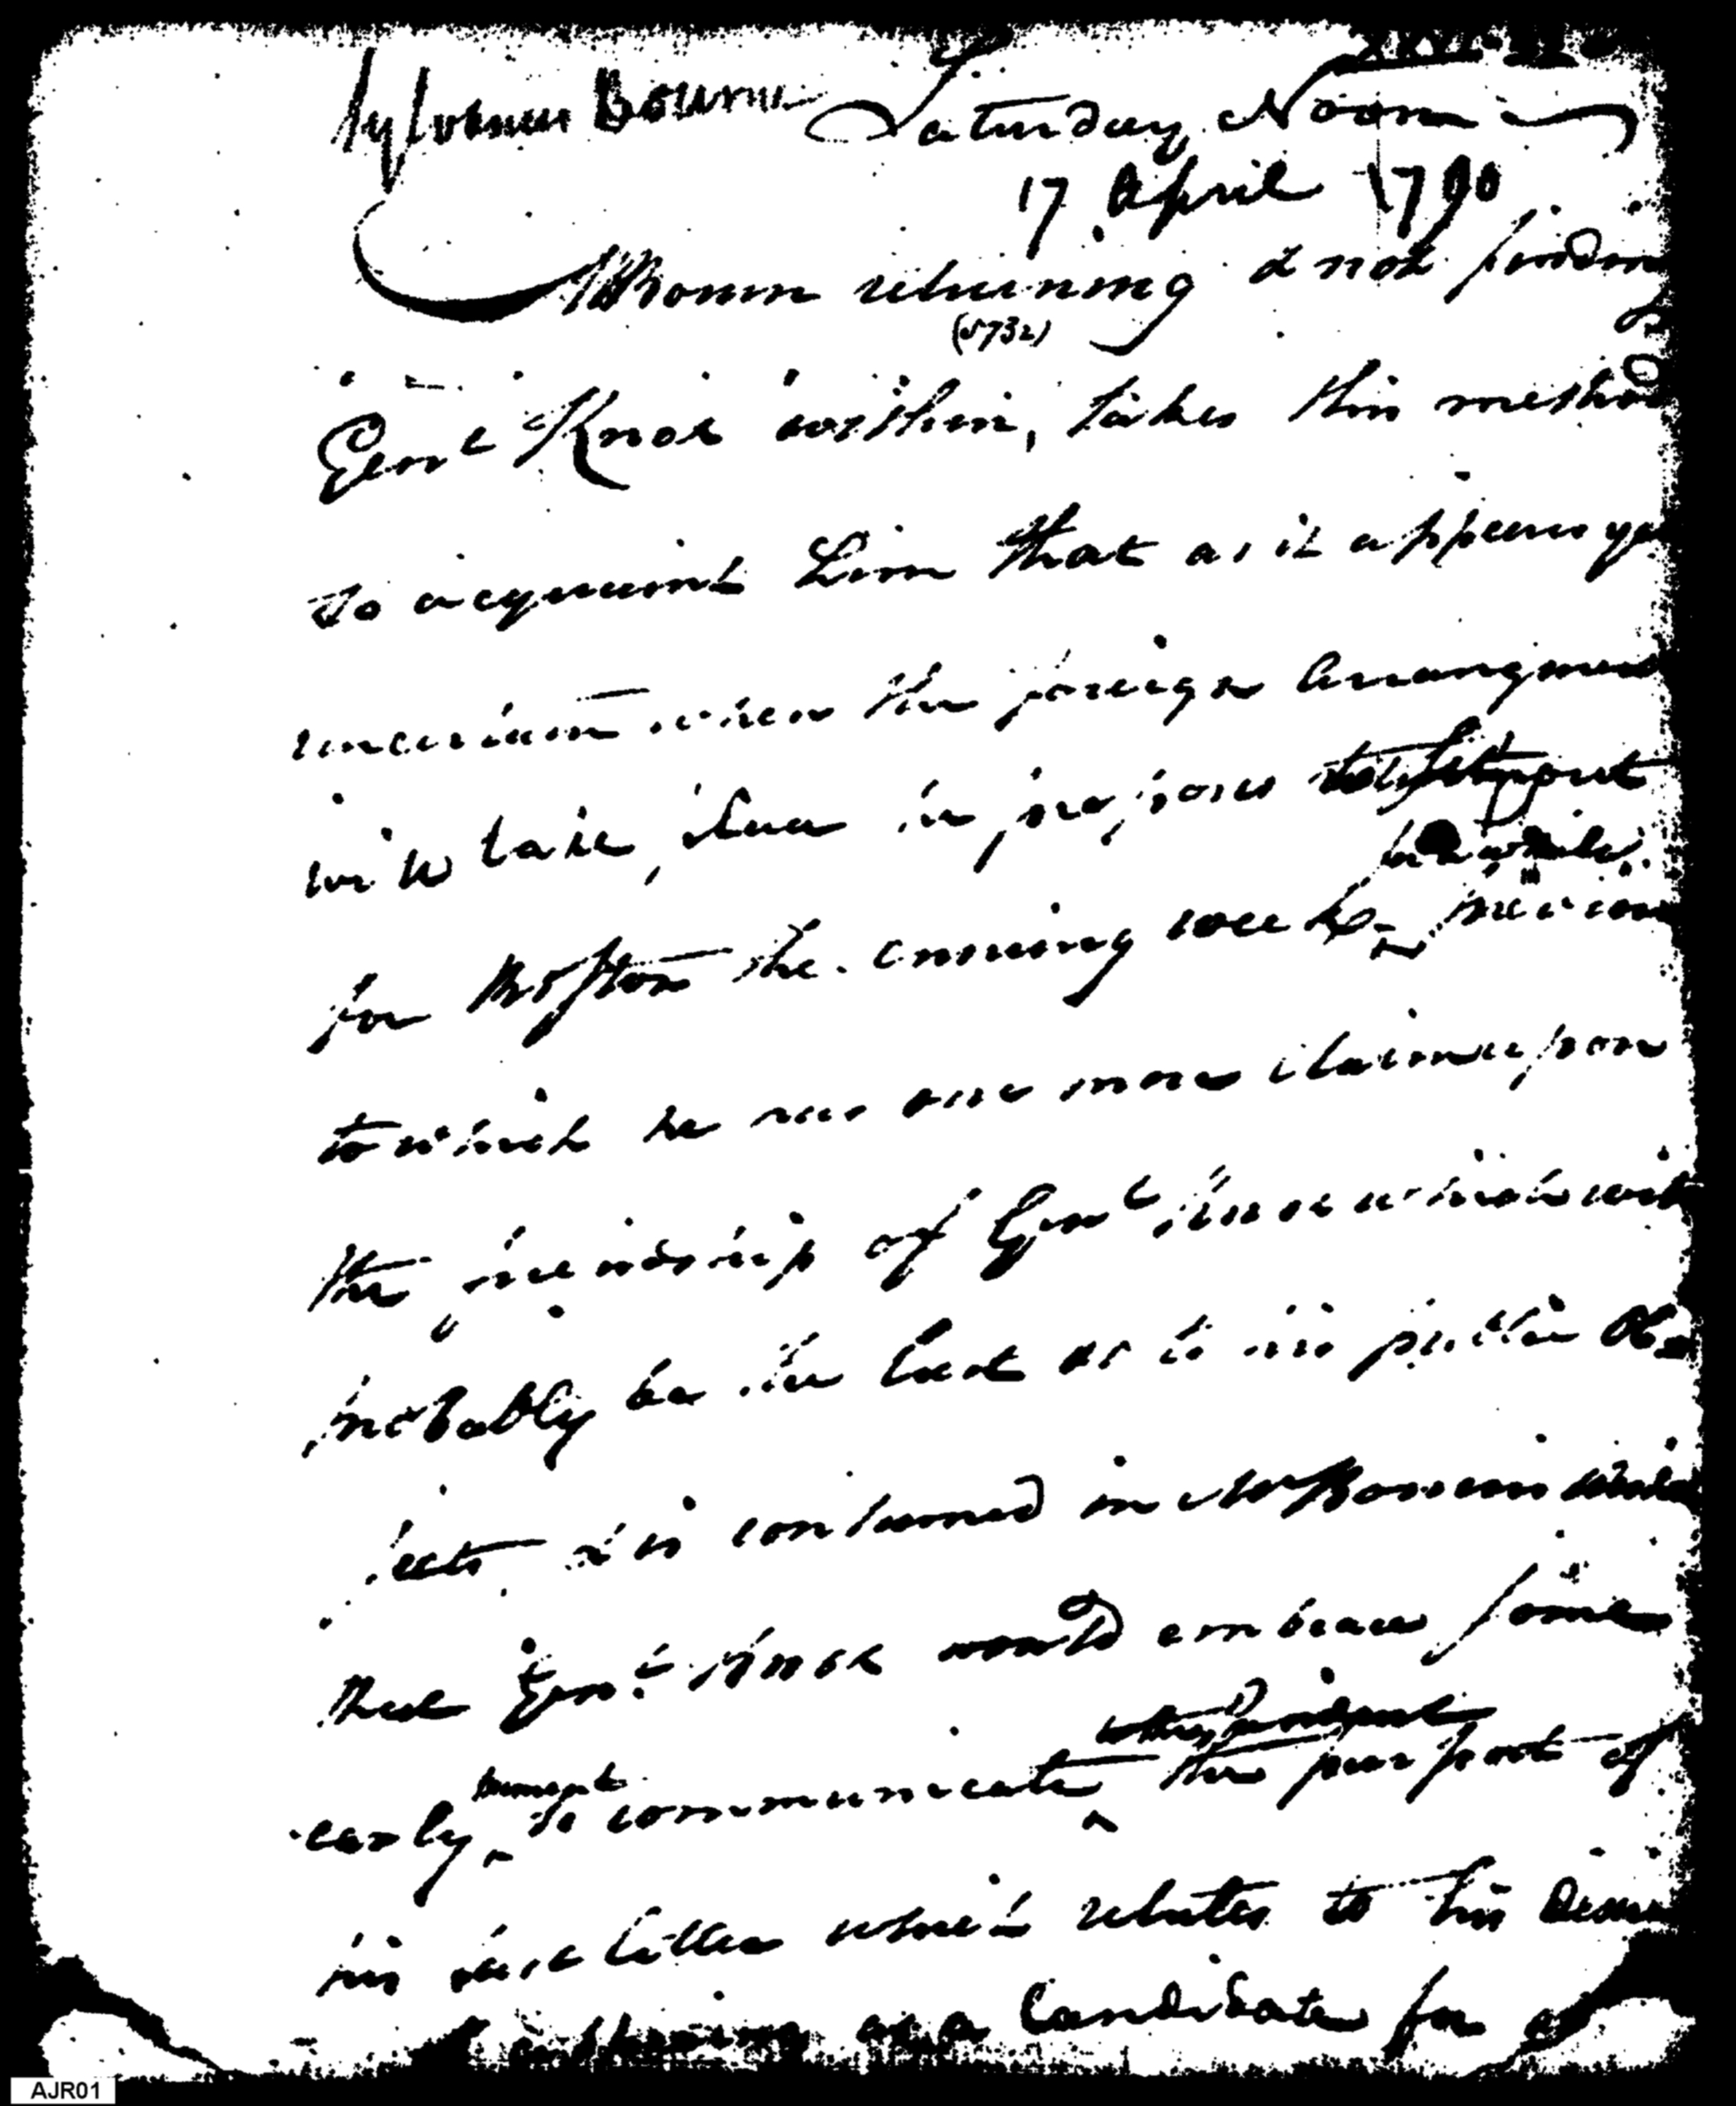 Sylvanus Bourne Saturday Noon
17 April 1790
Mr Bourne returning & not finding
(5732)
Genl Knox within, takes this method
to acquaint him that as it appears yet
uncertain when the foreign Arrangment
will take place he proposes to set out
for Boston the ensuing week previous
to which he has one more claim upon
the friendship of Genl Knox which will
probably be the last as to his public ob
jects & is contained in Mr Bournes wish
that Genl Knox would embrace some
early moment to communicate the purport of
his last letter which relates to his desire
as a Candidate for
AJR01